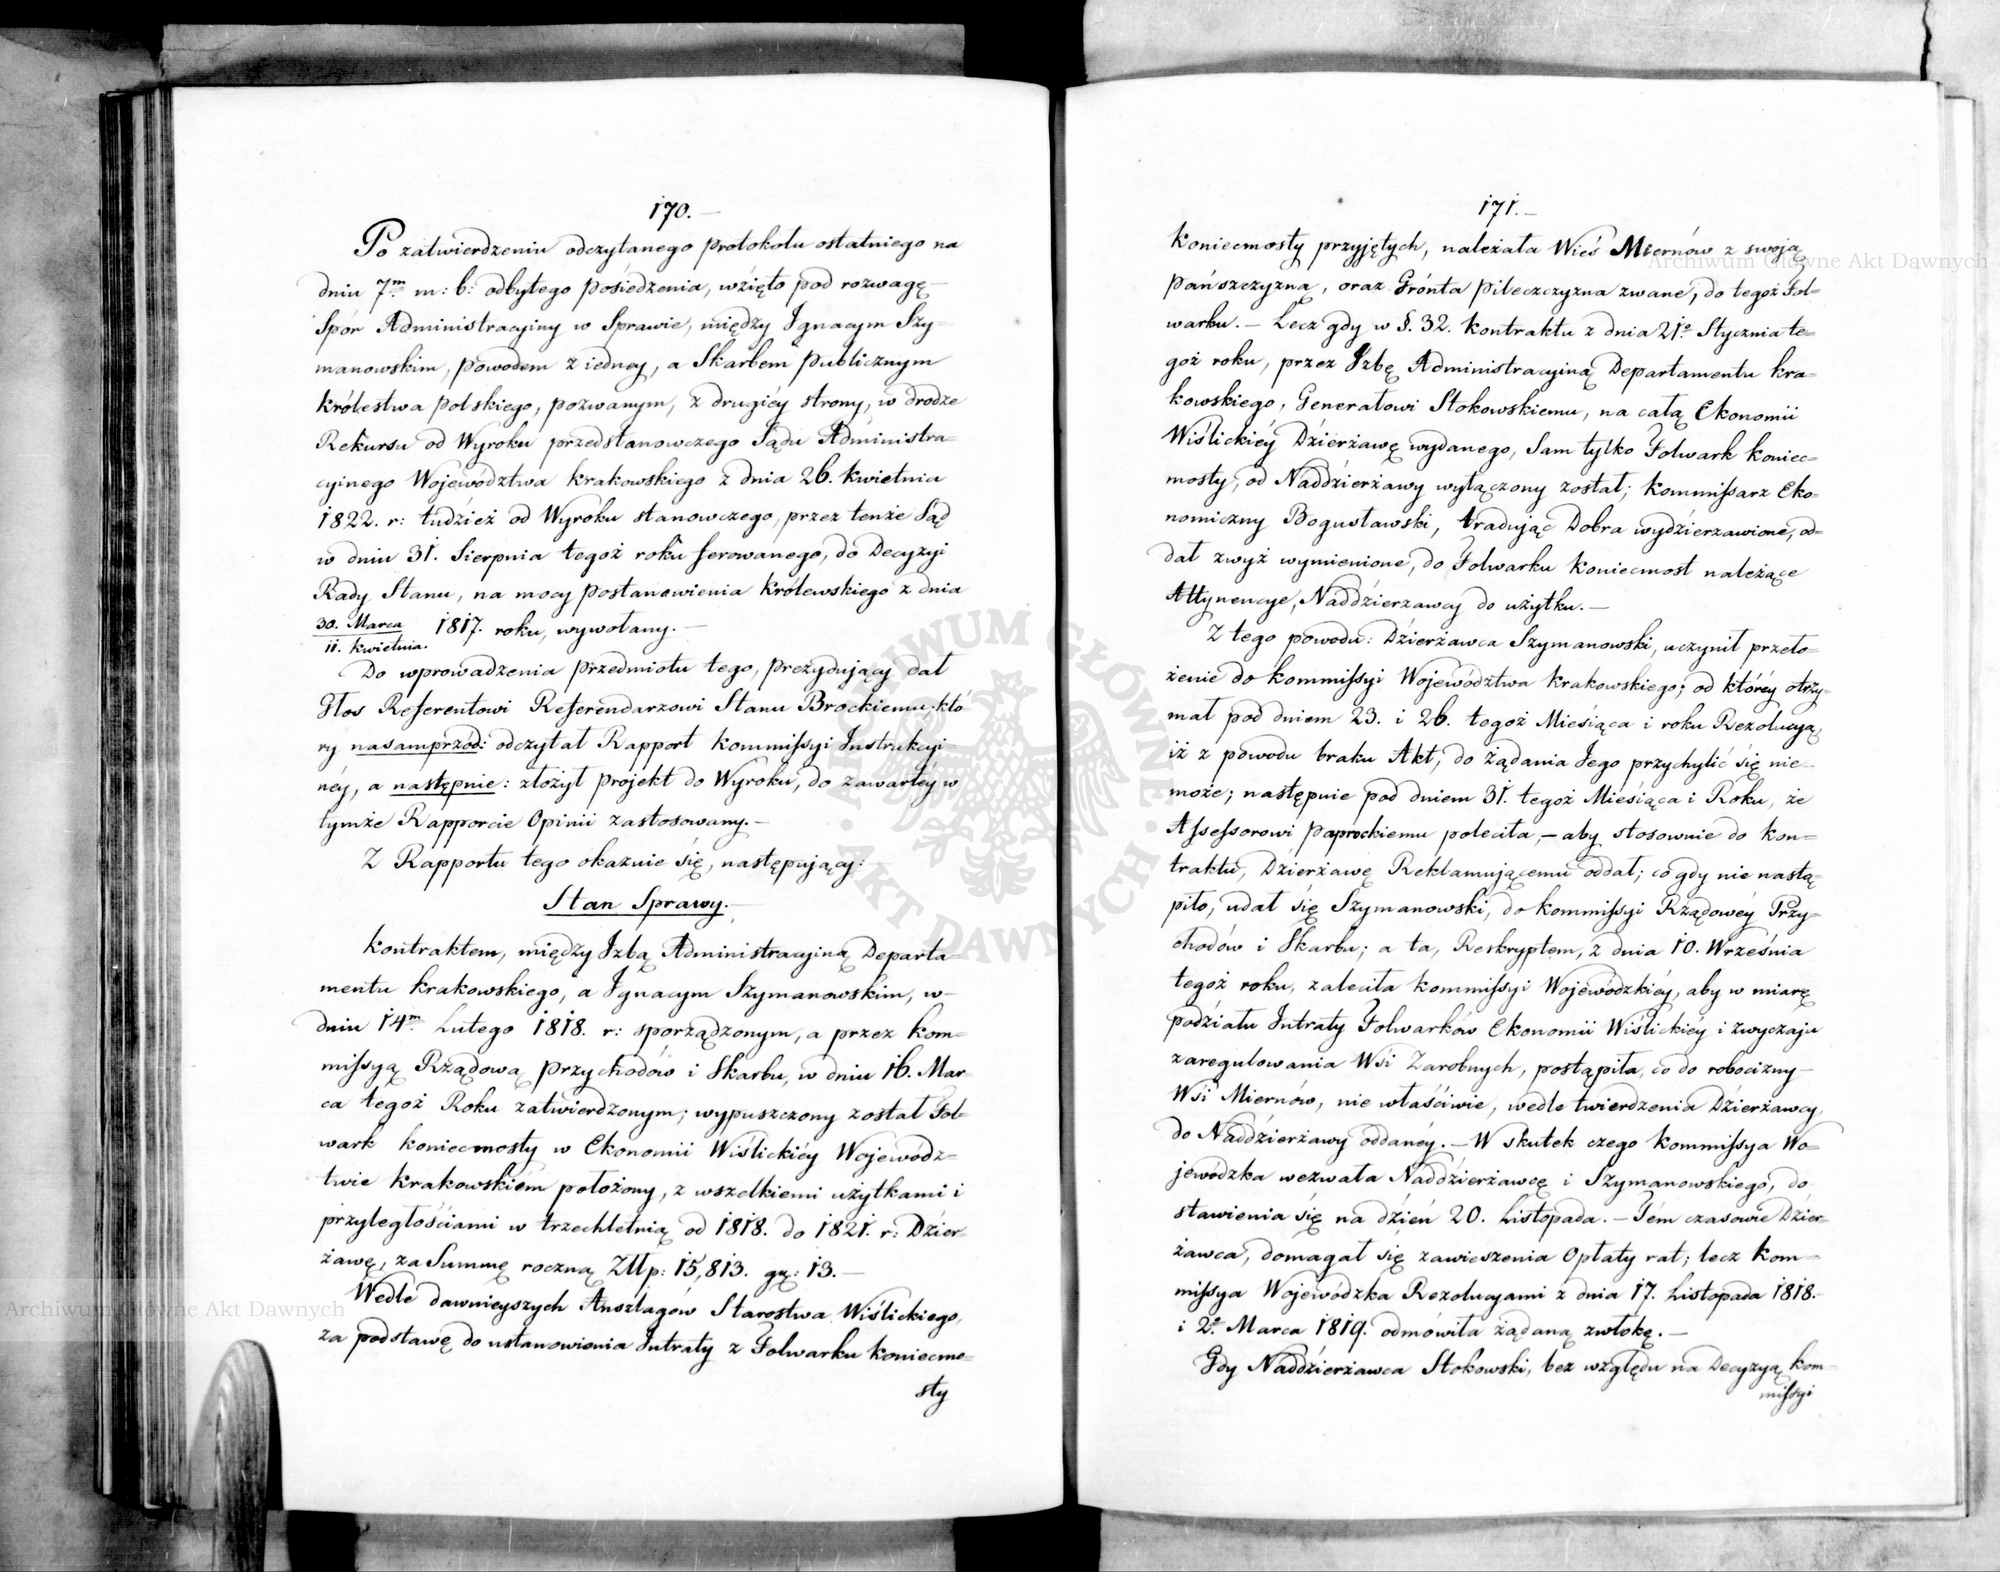 170.
Po zatwierdzeniu odczytanego protokołu ostatniego na
dniu 7m m: b: odbytego posiedzenia, wzięto pod rozwagę
Spór Administracyiny w Sprawie, między Ignacym Szy-
manowskim, powodem z iedney, a Skarbem Publicznym
Królestwa Polskiego, pozwanym, z drugiéy strony, w drodze
Rekursu od Wyroku przedstanowczego Sądu Administra=
cyinego Województwa Krakowskiego z dnia 26. Kwietnia
1822. r: tudzież od Wyroku stanowczego, przez tenże Sąd
w dniu 31. Sierpnia tegoż roku ferowanego, do Decyzyi
Rady Stanu, na mocy postanowienia Królewskiego z dnia
30. Marca
11. Kwietnia. 1817. roku, wywołany. —
Do wprowadzenia przedmiotu tego, prezydujący dał
Głos Referentowi Referendarzowi Stanu Brockiemu; któ
ry nasamprzód: odczytał Rapport Kommissyi Instrukcyi-
néy, a następnie: złożył projekt do Wyroku, do zawartéy w
tymże Rapporcie Opinii zastosowany. —
Z Rapportu tego okazuie się, następujący:
Stan Sprawy.
Kontraktem, między Izbą Administracyiną Departa-
mentu Krakowskiego, a Ignacym Szymanowskim, w-
dniu 14m Lutego 1818. r: sporządzonym, a przez Kom=
missyą Rządową Przychodów i Skarbu, w dniu 16. Mar-
ca tegoż Roku zatwierdzonym; wypuszczony został Fol-
wark Koniecmosty w Ekonomii Wiślickiéy Wojewódz=
twie Krakowskiém położony, z wszelkiemi użytkami i
przyległościami w trzechletnią od 1818. do 1821. r: Dzier-
żawę, za Summę roczną Złłp: 15,813. gr: 13. —
Wedle dawnieyszych Anszlagów Starostwa Wiślickiego,
za podstawę do ustanowienia Intraty z Folwarku Koniecmo=
sty
171.
Koniecmosty przyjętych, należała Wieś Miernów z swoją
Pańszczyzną, oraz Grónta Pileczczyzna zwane, do tegoż Fol-
warku. — Lecz gdy w §. 32. Kontraktu z dnia 21o Stycznia te=
goż roku, przez Izbę Administracyiną Departamentu Kra=
kowskiego, Generałowi Stokowskiemu, na całą Ekonomii
Wiślickiéy Dzierżawę wydanego, Sam tylko Folwark Koniec=
mosty, od Naddzierżawy wyłączony został; Kommissarz Eko-
nomiczny Bogusławski, tradując Dobra wydzierzawione, od=
dał zwyż wymienione, do Folwarku Koniecmost należące
Attynencye, Naddzierzawcy do użytku. —
Z tego powodu: Dzierżawca Szymanowski, uczynił przeło-
żenie do Kommissyi Województwa Krakowskiego; od któréy otrzy-
mał pod dniem 23. i 26. tegoż Miesiąca i roku Rezolucyą,
iż z powodu braku Akt, do żądania Jego przychylić się nie-
może; następnie pod dniem 31. tegoż Miesiąca i Roku, że
Assessorowi Paprockiemu poleciła, — aby stosownie do kon=
traktu, Dzierżawę Reklamującemu oddał; co gdy nie nastą=
piło, udał się Szymanowski, do Kommissyi Rządowéy Przy=
chodów i Skarbu; a ta, Reskryptem, z dnia 10. Września
tegoż roku, zaleciła Kommissyi Wojewódzkiéy, aby w miarę
podziału Intraty Folwarków Ekonomii Wiślickiéy i zwyczaju
zaregulowania Wsi Zarobnych, postąpiła, co do robocizny-
Wsi Miernów, nie właściwie, wedle twierdzenia Dzierżawcy,
do Naddzierżawy oddanéy. — W skutek czego Kommissya Wo=
jewódzka wezwała Naddzierżawcę i Szymanowskiego, do
stawienia się na dzień 20. Listopada. — Tém czasowie Dzier=
żawca, domagał się zawieszenia Opłaty rat; lecz Kom=
missya Wojewódzka Rezolucyami z dnia 17. Listopada 1818.
i 2o Marca 1819. odmówiła żądaną zwłokę. —
Gdy Naddzierżawca Stokowski, bez względu na Decyzyą Kom=
missyi
Archiwum Główne Akt Dawnych
Archiwum Główne Akt Dawnych
ARCHIWUM GŁÓWNE · AKT DAWNYCH ·